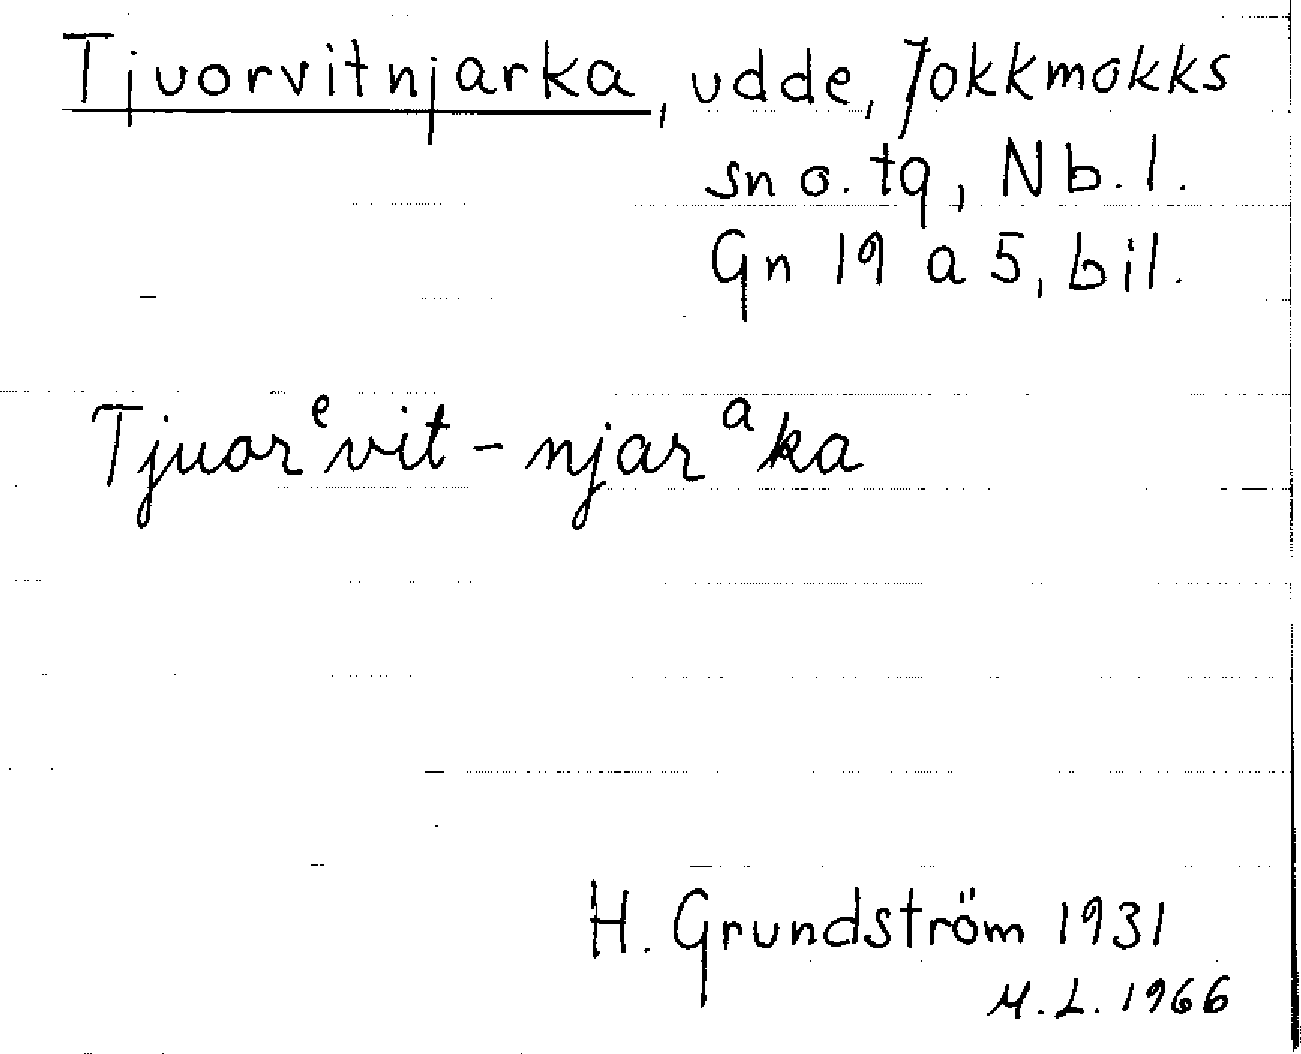 Tjuorvitnjarka, udde, Jokkmokks
sn o. tg, Nb. l.
Gn 19 a 5, bil.
Tjuorᵉvit-njarᵃka
H. Grundström 1931
M. L. 1966